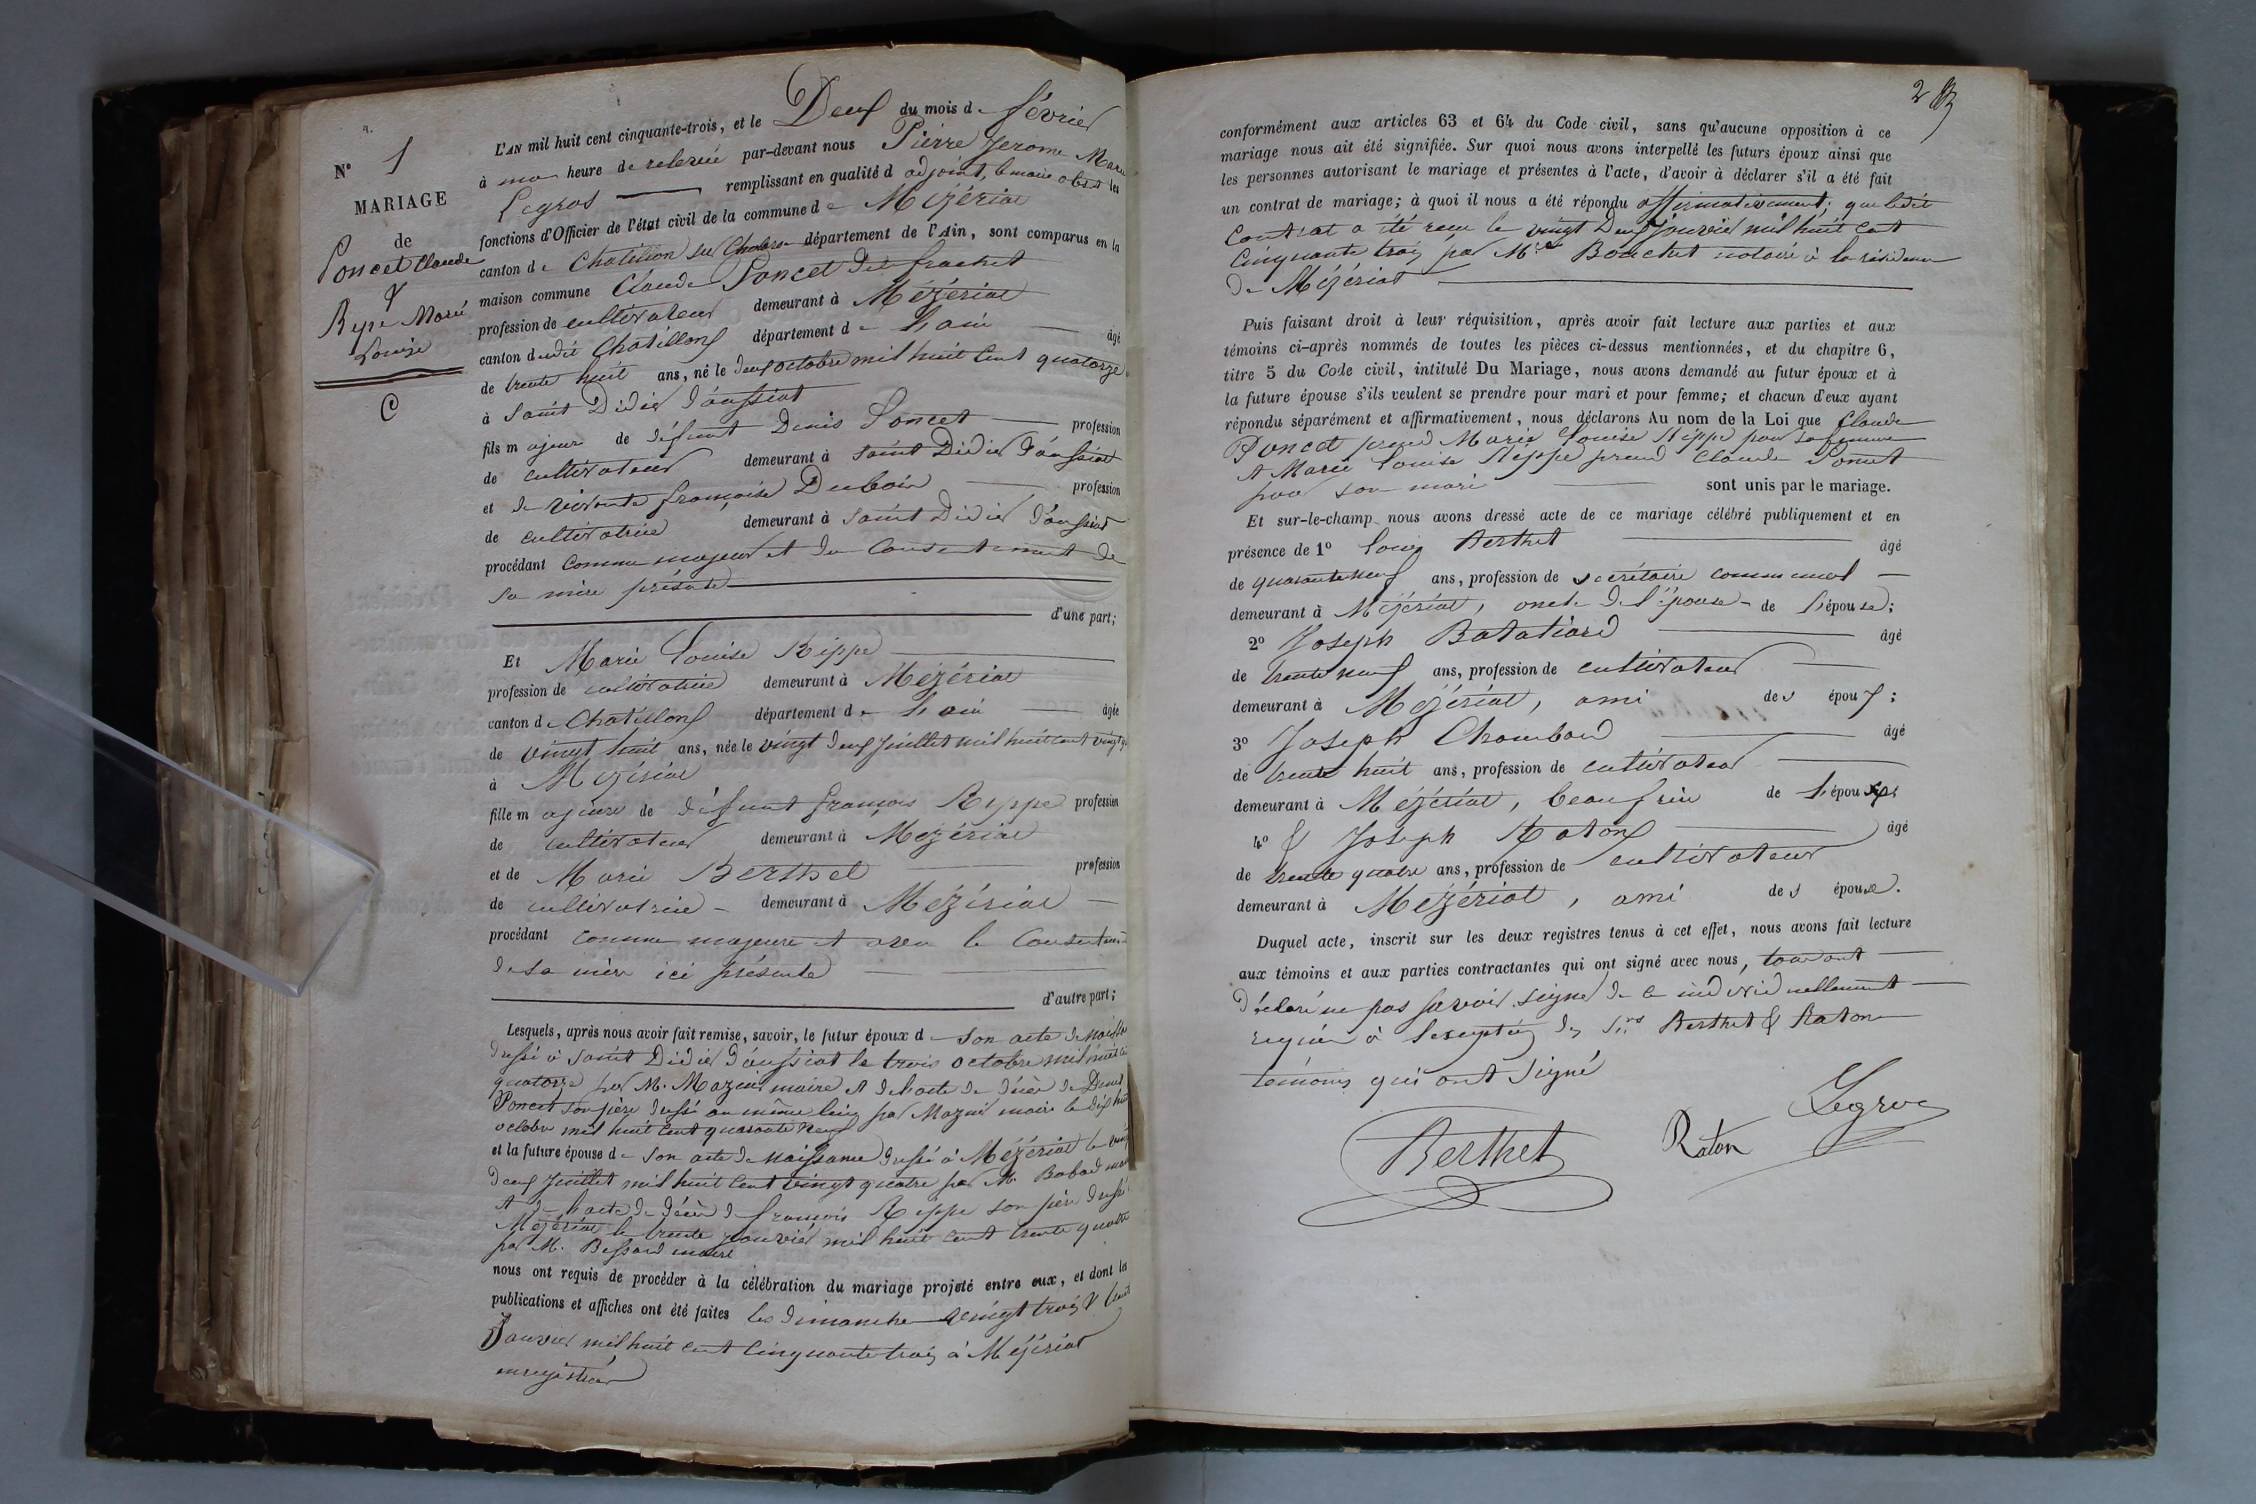 N° 1
MARIAGE
de
Poncet Claude
&
Rippe Marie
Louise
C
L'AN mil huit cent cinquante-trois, et le Deux du mois de février
à une heure de relevée par-devant nous Pierre Jerome Marie
Legros remplissant en qualité d'adjoint, le maire absent les
fonctions d'Officier de l'état civil de la commune de Mézériat
canton de Chatillon sur Chalaronne département de l'Ain, sont comparus en la
maison commune Claude Poncet dit frachet
profession de cultivateur demeurant à Mézériat
canton dudit Chatillon département de L'ain âgé
de trente huit ans, né le deux octobre mil huit cent quatorze
à Saint Didier d'aussiat
fils majeur de défunt Denis Poncet profession
de cultivateur demeurant à Saint Didier d'aussiat
et de vivante françoise Dubois profession
de cultivatrice demeurant à Saint Didier d'aussiat
procédant comme majeur et du consentement de
sa mère présente
d'une part;
Et Marie Louise Rippe
profession de cultivatrice demeurant à Mézériat
canton de Chatillon département de L'ain âgée
de vingt huit ans, née le vingt deux juillet mil huit cent vingt q
à Mézériat
fille majeure de défunt françois Rippe profession
de cultivateur demeurant à Mézériat
et de Marie Berthet profession
de cultivatrice demeurant à Mézériat
procédant comme majeure et avec le consentem
de sa mère ici présente
d'autre part;
Lesquels, après nous avoir fait remise, savoir, le futur époux de son acte de naissa
dressé à Saint Didier d'aussiat le trois octobre mil huit ce
quatorze par M. Mazuir maire et de l'acte de décès de Denis
Poncet son père dressé au même lieu par Mazuir maire le dix huit
octobre mil huit cent quarante neuf
et la future épouse de son acte de naissance dressé à Mézériat le vingt
deux juillet mil huit cent vingt quatre par M. Bobard maire
et de l'acte de décès de françois Rippe son père dressé
Mézériat le trente janvier mil huit cent trente quatre
par M. Bessard maire
nous ont requis de procéder à la célébration du mariage projeté entre eux, et dont les
publications et affiches ont été faites les dimanches vingt trois & trente
Janvier mil huit cent cinquante trois à Mézériat
enregistrée
2
conformément aux articles 63 et 64 du Code civil, sans qu'aucune opposition à ce
mariage nous ait été signifiée. Sur quoi nous avons interpellé les futurs époux ainsi que
les personnes autorisant le mariage et présentes à l'acte, d'avoir à déclarer s'il a été fait
un contrat de mariage; à quoi il nous a été répondu affirmativement; que ledit
contrat a été reçu le vingt Deux Janvier mil huit cent
Cinquante trois par Me Bouchet notaire à la résidence
de Mézériat
Puis faisant droit à leur réquisition, après avoir fait lecture aux parties et aux
témoins ci-après nommés de toutes les pièces ci-dessus mentionnées, et du chapitre 6,
titre 5 du Code civil, intitulé Du Mariage, nous avons demandé au futur époux et à
la future épouse s'ils veulent se prendre pour mari et pour femme; et chacun d'eux ayant
répondu séparément et affirmativement, nous déclarons Au nom de la Loi que Claude
Poncet prend Marie Louise Rippe pour sa femme
et Marie Louise Rippe prend Claude Poncet
pour son mari sont unis par le mariage.
Et sur-le-champ nous avons dressé acte de ce mariage célébré publiquement et en
présence de 1° Louis Berthet âgé
de quarante neuf ans, profession de secrétaire communal
demeurant à Mézériat, oncle de l'épouse de l'épouse;
2° Joseph Batatiard âgé
de trente neuf ans, profession de cultivateur
demeurant à Mézériat, ami des époux;
3° Joseph Chambard âgé
de trente huit ans, profession de cultivateur
demeurant à Mézériat, beaufrère de l'époux;
4° & Joseph Raton âgé
de trente quatre ans, profession de cultivateur
demeurant à Mézériat, ami des époux.
Duquel acte, inscrit sur les deux registres tenus à cet effet, nous avons fait lecture
aux témoins et aux parties contractantes qui ont signé avec nous, tous ont
déclaré ne pas savoir signer de ce individuellement
requis à l'exception des Srs Berthet & Raton
témoins qui ont signé
Berthet Raton Legros